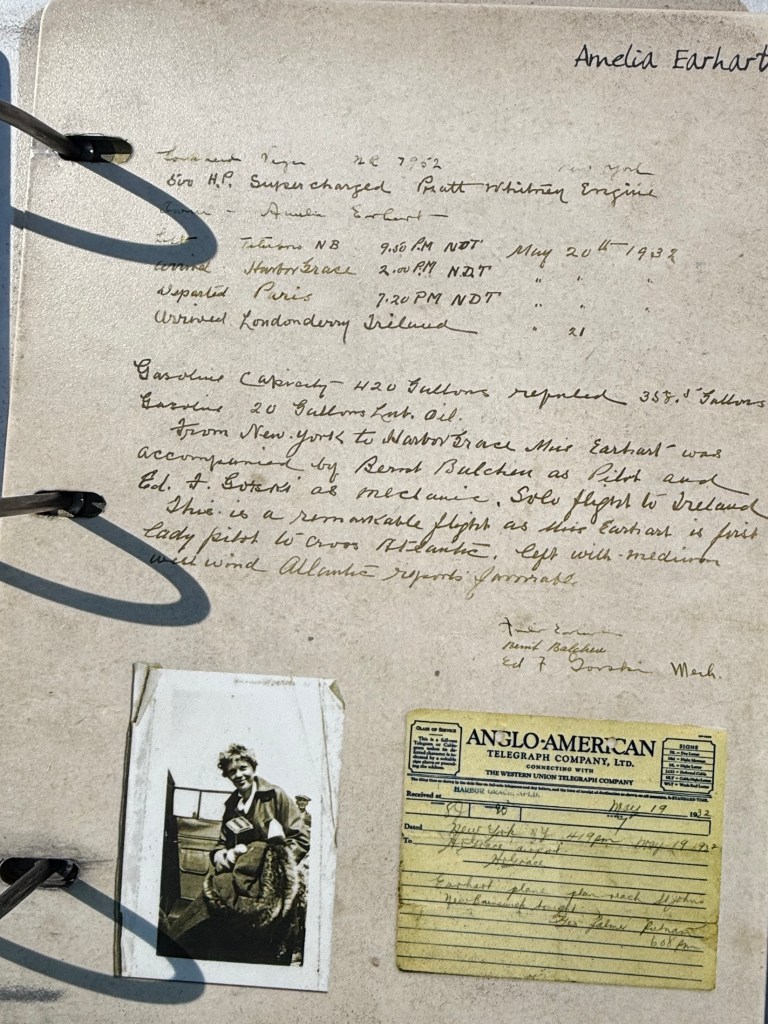 Amelia Earhart
NR 7952 New York
500 H.P. Supercharged Pratt Whitney Engine
Owner - Amelia Earhart -
Left NB 9.50 PM NDT May 20th 1932
Arrived Harbor Grace 2.00 P.M NDT " " "
Departed Paris 7.20 PM NDT " " "
Arrived Londonderry Ireland " 21
Gasoline Capacity 420 Gallons 358.5 Gallons
Gasoline 20 Gallons Lub. Oil.
From New York to Harbor Grace Miss Earhart was
accompanied by Bernt Balchen as Pilot and
Ed. F. Gorski as mechanic. Solo flight to Ireland
This is a remarkable flight as Miss Earhart is first
lady pilot to cross Atlantic. left with medium
west wind Atlantic reports favorable
Bernt Balchen
Ed F Gorski Mech.
CLASS OF SERVICE
ANGLO-AMERICAN
TELEGRAPH COMPANY, LTD.
CONNECTING WITH
THE WESTERN UNION TELEGRAPH COMPANY
SIGNS
HARBOR GRACE
Received at May 19 1932
Dated New York NY 419 pm May 19 1932
To H Grace airport
H Grace
Earhart plane plan reach St Johns
New Brunswick tonight
Geo Palmer Putnam
608 pm